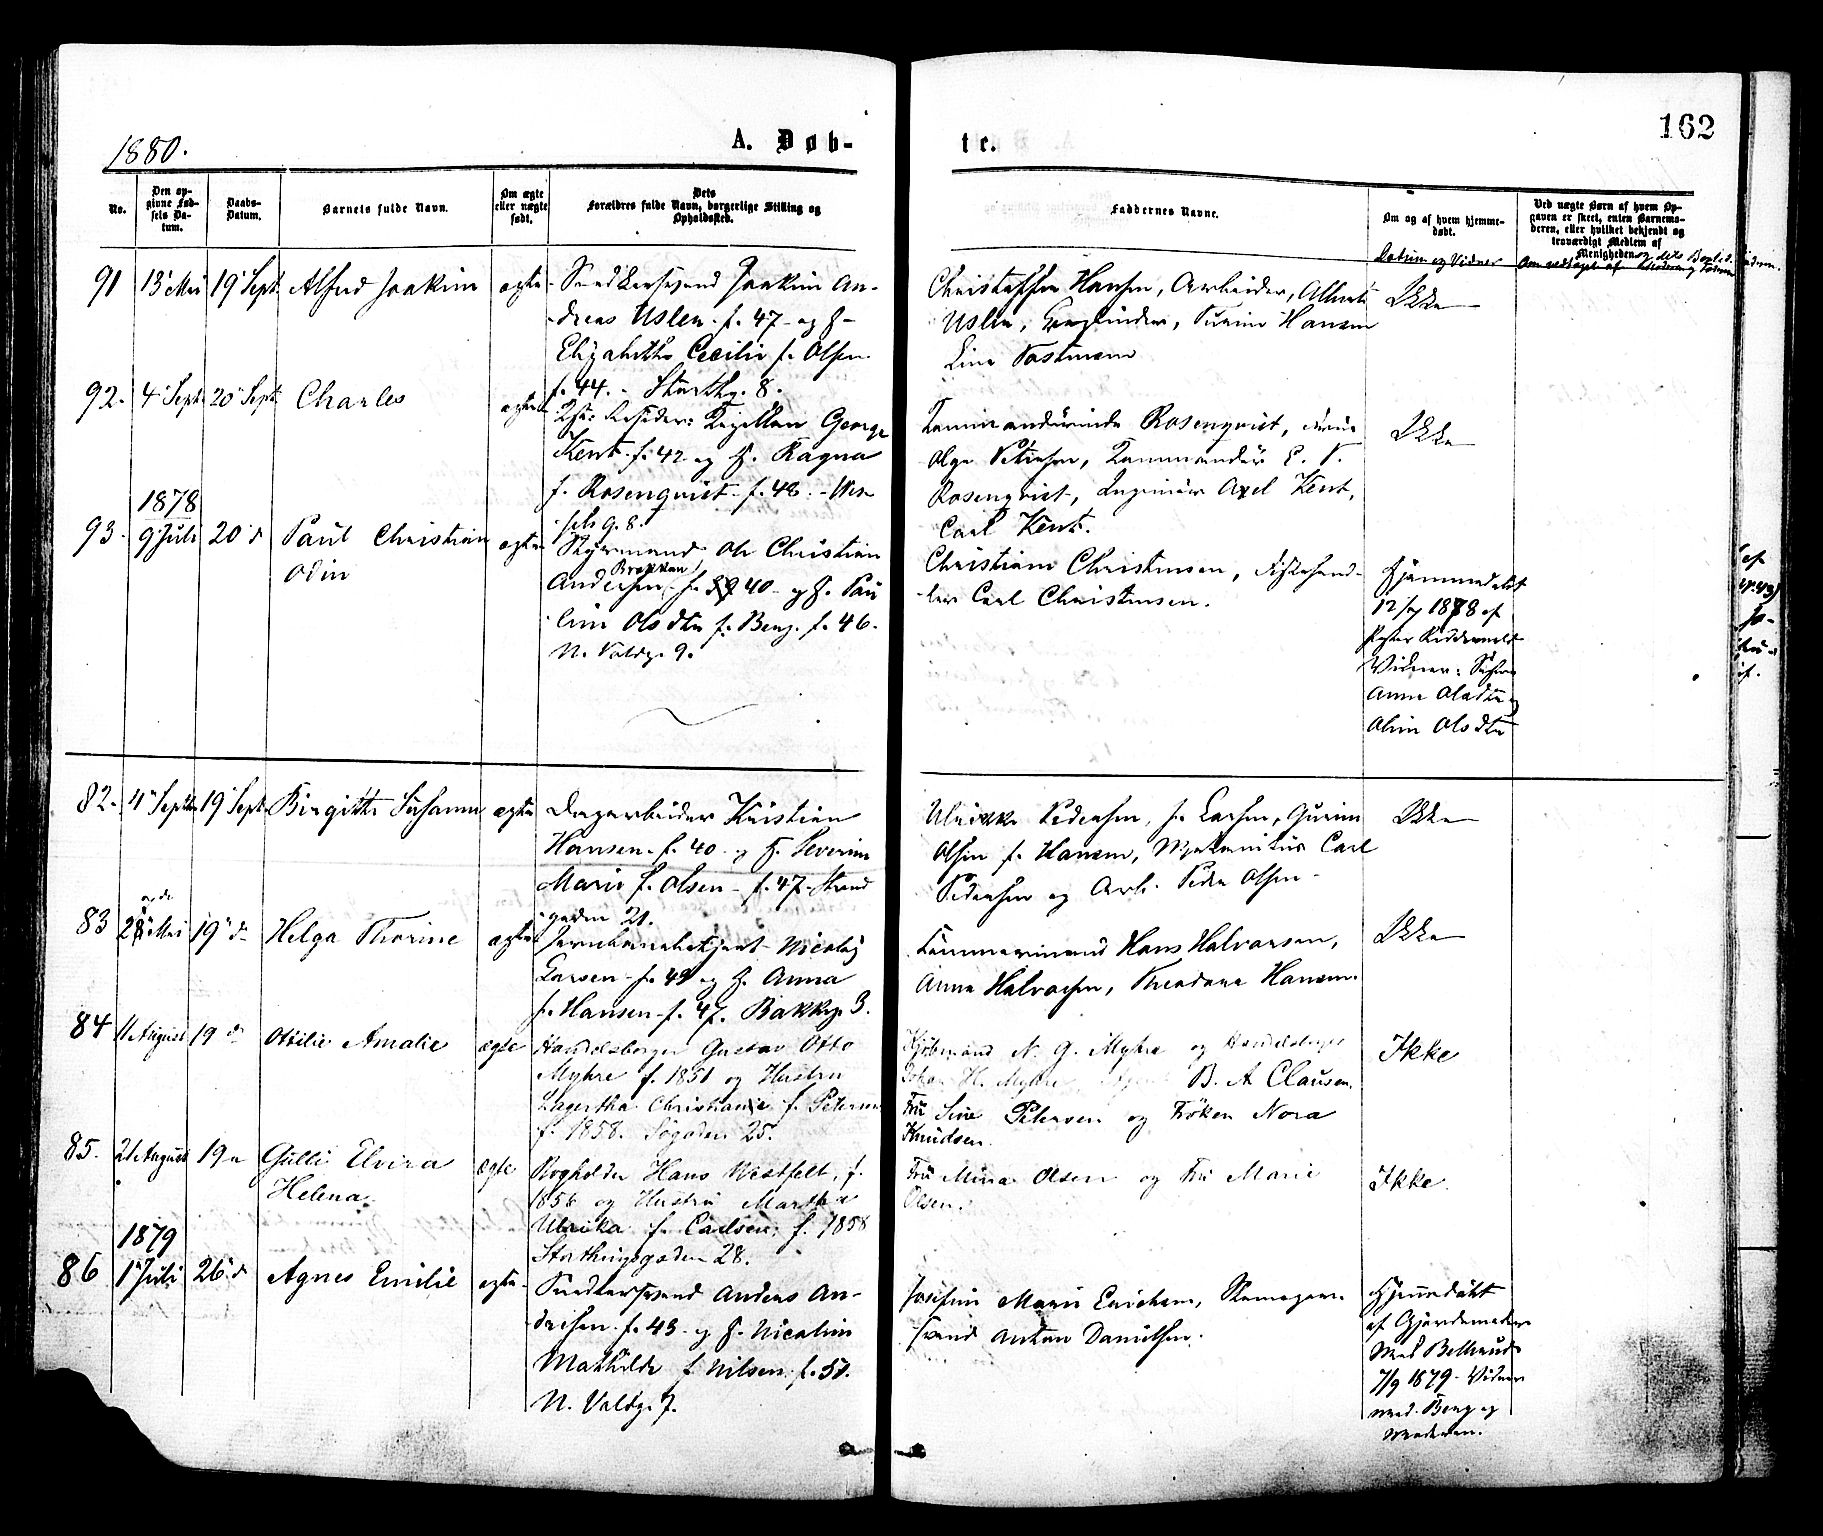 162
1880.
A. Døb-
te.
No.
Den op-
givne Fød-
sels Da-
tum.
Daabs-
Datum.
Barnets fulde Navn.
Om ægte
eller uægte
født.
Dets
Forældres fulde Navn, borgerlige Stilling og
Opholdssted.
Faddernes Navne.
Om og af hvem hjemme-
døbt.
Datum og Vidner
Ved uægte Børn af hvem Op-
gaven er skeet, enten Barnemo-
deren, eller hvilket bekjendt og
troværdigt Medlem af
Menigheden
91 13 Mai 19 Sept. Alfred Joakim ægte
Snedkersvend Joakim An-
dreas Uslen f. 47 og H
Elisabeth Cecilie f. Olsen
f. 44. Storthg. 8.
Christopher Hansen, Arbeider, Albert
Uslen, Hansen
Line Kastmann
Ikke
92. 4 Sept. 20 Sept. Charles ægte
George
Kent f. 42 og H. Ragna
f. Rosenqvist f. 48. Wes-
sels g. 8.
Kommandørinde Rosenqvist,
Olga Petersen, Kommandør
Rosenqvist, Ingeniør Axel Kent,
Carl Kent.
Ikke
1878
93. 9 Juli 20 d Paul Christian
Odin ægte
Styrmand Ole Christian
Brekken
Andersen f. 40 og H. Pau-
line Olsdtr f. Berg f. 46.
N. Voldg. 9.
Christian Christensen, Fiskehand-
ler Carl Christensen.
Hjemmedøbt
12/ 1878 af
Vidner:
Anne Olsdtr og
Oline Olsdtr
82. 4 Septbr 19 Sept. Birgitte Susanne ægte
Dagarbeider Kristian
Hansen f. 40 og H. Severine
Marie f. Olsen f. 47 Strand
gaden 21.
Ulrikke Pedersen, f. Larsen, Gurine
Olsen f. Hansen, Mekanikus Carl
Pedersen og Arb. Peder Olsen
Ikke
83 28 Mai 19 d Helga Thorine ægte
Jernbanebetjent Nicolaj
Larsen f. 49 og H. Anna
f. Hansen f. 47. Bakkeg. 3.
Tømmermand Hans Halvorsen,
Anna Halvorsen, Theodora Hansen.
Ikke
84 11 August 19 d Ottilie Amalie ægte
Handelsborger Gustav Otto
Myhre f. 1851 og Hustru
Lagertha Christiane f. Petersen
f. 1858. Søgaden 25.
Kjøbmand N. G. Myhre og Handelsborger
Johan H. Myhre, Agent B. A Clausen.
Fru Sine Petersen og Frøken Nora
Knudsen.
Ikke
85. 21 August 19 Gulli Elvira
Helena. ægte
Bogholder Hans Westfelt, f.
1856 og Hustru Martha
Ulrika f. Carlsen, f. 1858
Storthingsgaden 28.
Fru Mina Olsen og Fru Marie
Olsen.
Ikke.
1879
86 1 Juli 26 d Agnes Emilie ægte
Snedkersvend Anders An-
dersen f. 43 og H. Nicoline
Mathilde f. Nilsen f. 50.
N. Voldg. 7.
Josefine Marie Erichsen, Skomager-
svend Anton Danielsen.
Hjemmedøbt
af Gjordemoder
Mad Bellerud
7/9 1879 Vidner
Mad. Berg og
Moderen.